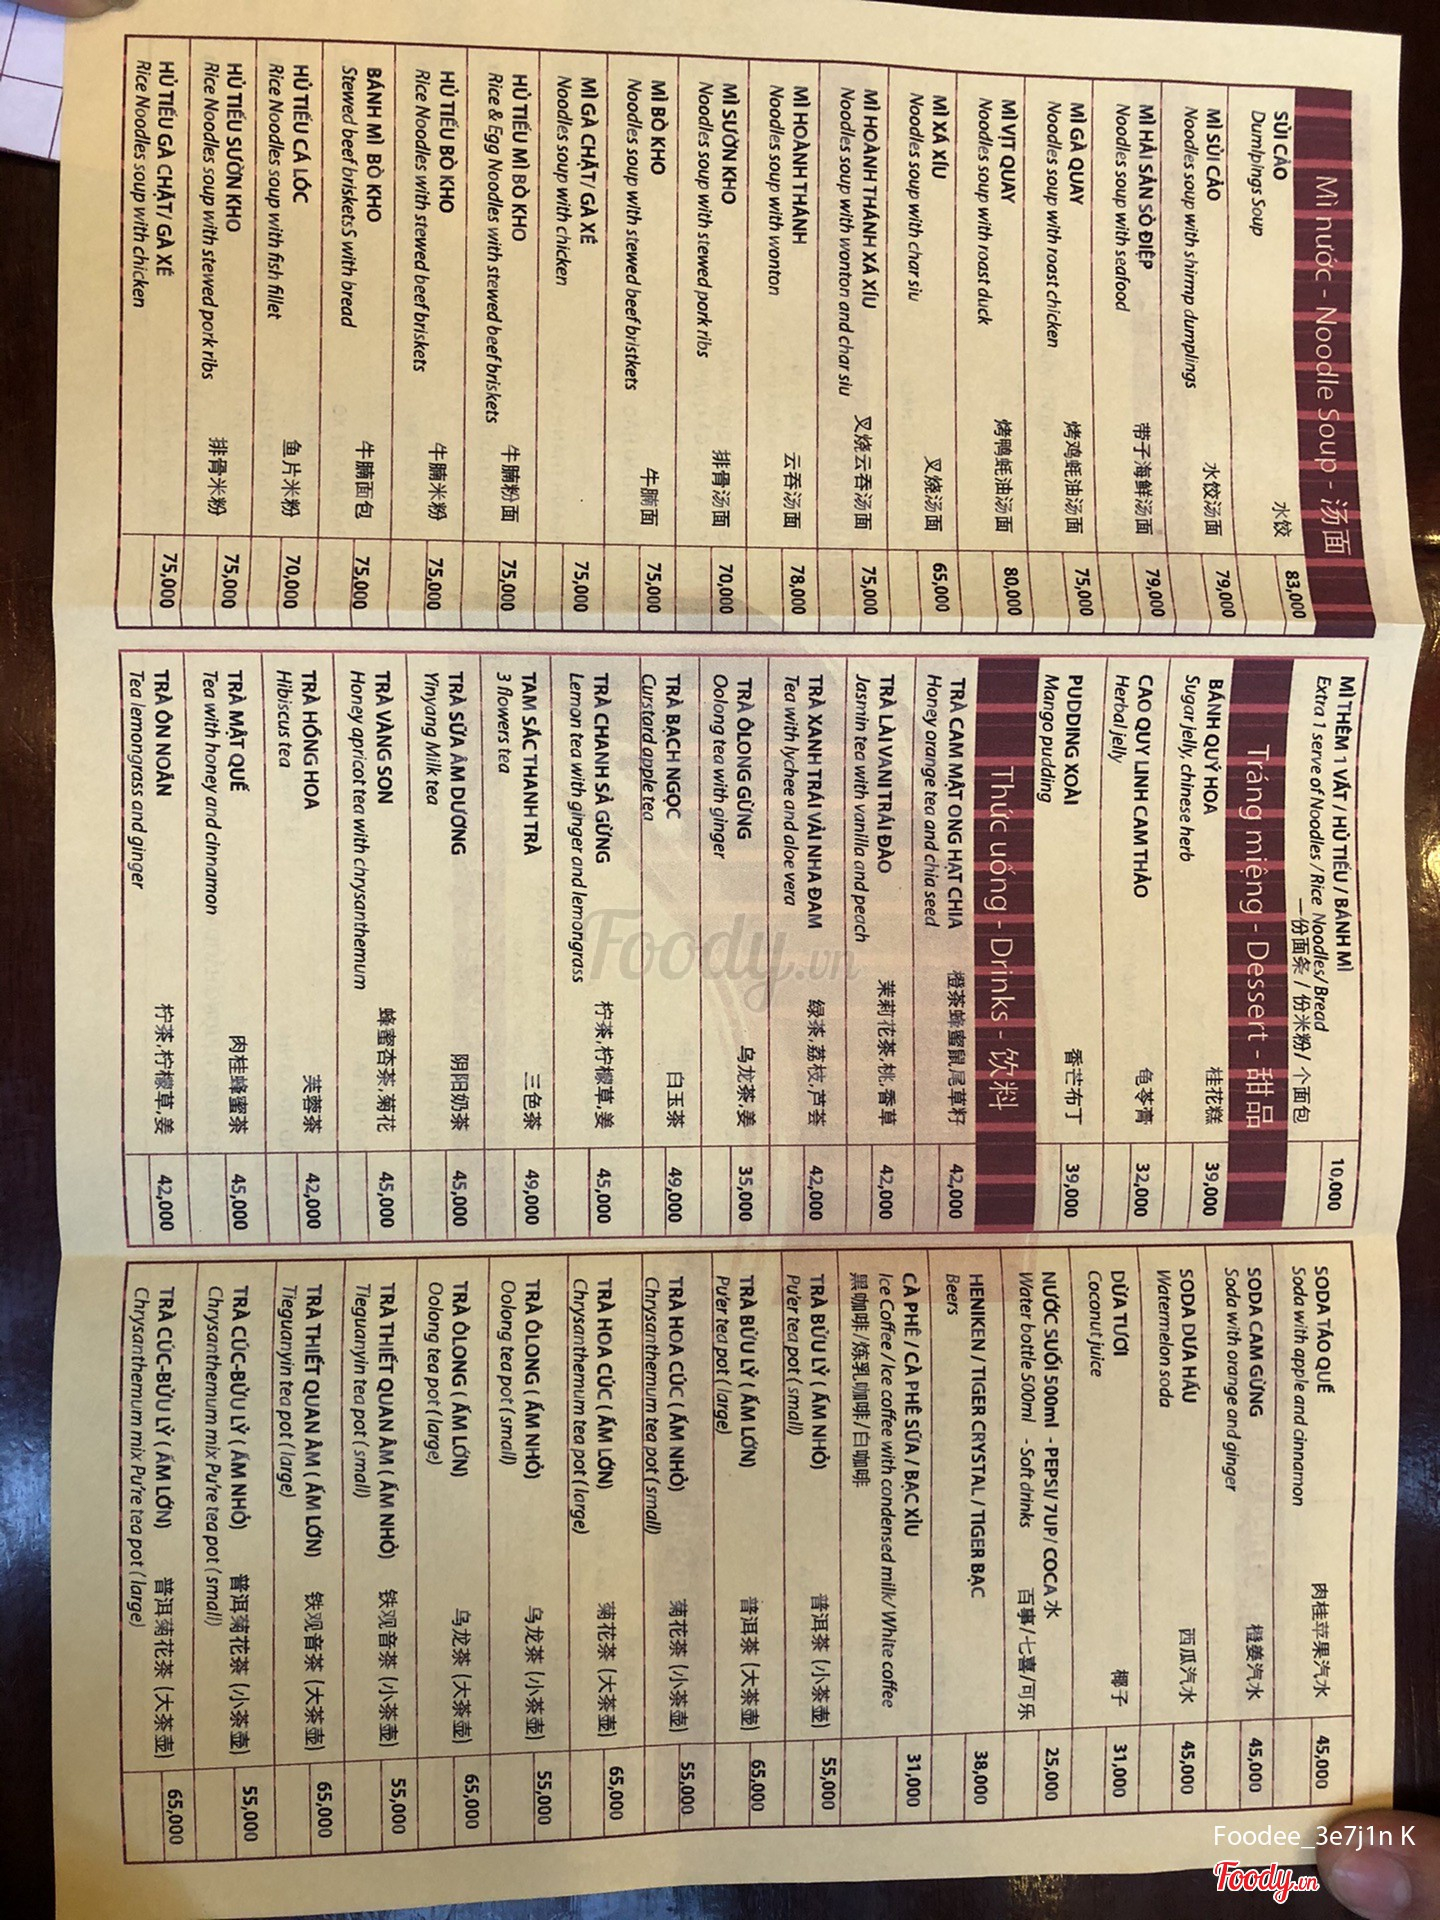 Mì nước - Noodle Soup - 汤面
SỦI CẢO
Dumlpings Soup
水饺
83,000
MÌ SỦI CẢO
Noodles soup with shirmp dumplings
水饺汤面
79,000
MÌ HẢI SẢN SÒ ĐIỆP
Noodles soup with seafood
带子海鲜汤面
79,000
MÌ GÀ QUAY
Noodles soup with roast chicken
烤鸡蚝油汤面
75,000
MÌ VỊT QUAY
Noodles soup with roast duck
烤鸭蚝油汤面
80,000
MÌ XÁ XÍU
Noodles soup with char siu
叉烧汤面
65,000
MÌ HOÀNH THÁNH XÁ XÍU
Noodles soup with wonton and char siu
叉烧云吞汤面
75,000
MÌ HOÀNH THÁNH
Noodles soup with wonton
云吞汤面
78,000
MÌ SƯỜN KHO
Noodles soup with stewed pork ribs
排骨汤面
70,000
MÌ BÒ KHO
Noodles soup with stewed beef bristkets
牛腩面
75,000
MÌ GÀ CHẶT/ GÀ XÉ
Noodles soup with chicken
75,000
HỦ TIẾU MÌ BÒ KHO
Rice & Egg Noodles with stewed beef briskets
牛腩粉面
75,000
HỦ TIẾU BÒ KHO
Rice Noodles with stewed beef briskets
牛腩米粉
75,000
BÁNH MÌ BÒ KHO
Stewed beef briskets S with bread
牛腩面包
75,000
HỦ TIẾU CÁ LÓC
Rice Noodles soup with fish fillet
鱼片米粉
70,000
HỦ TIẾU SƯỜN KHO
Rice Noodles soup with stewed pork ribs
排骨米粉
75,000
HỦ TIẾU GÀ CHẶT/ GÀ XÉ
Rice Noodles soup with chicken
75,000
MÌ THÊM 1 VẮT / HỦ TIẾU / BÁNH MÌ
Extra 1 serve of Noodles / Rice Noodles/ Bread
一份面条 / 份米粉/ 个面包
10,000
Tráng miệng - Dessert - 甜品
BÁNH QUÝ HOA
Sugar Jelly, chinese herb
桂花糕
39,000
CAO QUY LINH CAM THẢO
Herbal jelly
龟苓膏
32,000
PUDDING XOÀI
Mango pudding
香芒布丁
39,000
Thức uống - Drinks - 饮料
TRÀ CAM MẬT ONG HẠT CHIA
Honey orange tea and chia seed
橙茶蜂蜜鼠尾草籽
42,000
TRÀ LÀI VANI TRÁI ĐÀO
Jasmin tea with vanilla and peach
茉莉花茶,桃,香草
42,000
TRÀ XANH TRÁI VẢI NHA ĐAM
Tea with lychee and aloe vera
绿茶,荔枝,芦荟
42,000
TRÀ ÔLONG GỪNG
Oolong tea with ginger
乌龙茶,姜
35,000
TRÀ BẠCH NGỌC
Curstard apple tea
白玉茶
49,000
TRÀ CHANH SẢ GỪNG
Lemon tea with ginger and lemongrass
柠茶,柠檬草,姜
45,000
TAM SẮC THANH TRÀ
3 flowers tea
三色茶
49,000
TRÀ SỮA ÂM DƯƠNG
Yinyang Milk tea
阴阳奶茶
45,000
TRÀ VÀNG SON
Honey apricot tea with chrysanthemum
蜂蜜杏茶,菊花
45,000
TRÀ HỒNG HOA
Hibiscus tea
芙蓉茶
42,000
TRÀ MẬT QUẾ
Tea with honey and cinnamon
肉桂蜂蜜茶
45,000
TRÀ ÔN NOÃN
Tea lemongrass and ginger
柠茶,柠檬草,姜
42,000
SODA TÁO QUẾ
Soda with apple and cinnamon
肉桂苹果汽水
45,000
SODA CAM GỪNG
Soda with orange and ginger
橙姜汽水
45,000
SODA DƯA HẤU
Watermelon soda
西瓜汽水
45,000
DỪA TƯƠI
Coconut juice
椰子
31,000
NƯỚC SUỐI 500ml - PEPSI/ 7UP/ COCA 水
Water bottle 500ml - Soft drinks
百事/七喜/可乐
25,000
HENIKEN / TIGER CRYSTAL / TIGER BẠC
Beers
38,000
CÀ PHÊ / CÀ PHÊ SỮA / BẠC XỈU
Ice Coffee / Ice coffee with condensed milk/ White coffee
黑咖啡/炼乳咖啡/白咖啡
31,000
TRÀ BỬU LỴ ( ẤM NHỎ)
Pu'er tea pot ( small)
普洱茶 (小茶壶)
55,000
TRÀ BỬU LỴ ( ẤM LỚN)
Pu'er tea pot ( large)
普洱茶 (大茶壶)
65,000
TRÀ HOA CÚC ( ẤM NHỎ)
Chrysanthemum tea pot ( small)
菊花茶 (小茶壶)
55,000
TRÀ HOA CÚC ( ẤM LỚN)
Chrysanthemum tea pot ( large)
菊花茶 (大茶壶)
65,000
TRÀ ÔLONG ( ẤM NHỎ)
Oolong tea pot ( small)
乌龙茶 (小茶壶)
55,000
TRÀ ÔLONG ( ẤM LỚN)
Oolong tea pot ( large)
乌龙茶 (大茶壶)
65,000
TRÀ THIẾT QUAN ÂM ( ẤM NHỎ)
Tieguanyin tea pot ( small)
铁观音茶 (小茶壶)
55,000
TRÀ THIẾT QUAN ÂM ( ẤM LỚN)
Tieguanyin tea pot ( large)
铁观音茶 (大茶壶)
65,000
TRÀ CÚC-BỬU LỴ ( ẤM NHỎ)
Chrysanthemum mix Pu're tea pot ( small)
普洱菊花茶 (小茶壶)
55,000
TRÀ CÚC-BỬU LỴ ( ẤM LỚN)
Chrysanthemum mix Pu're tea pot ( large)
普洱菊花茶 (大茶壶)
65,000
Foody.vn
Foodee_3e7j1n K
Foody.vn